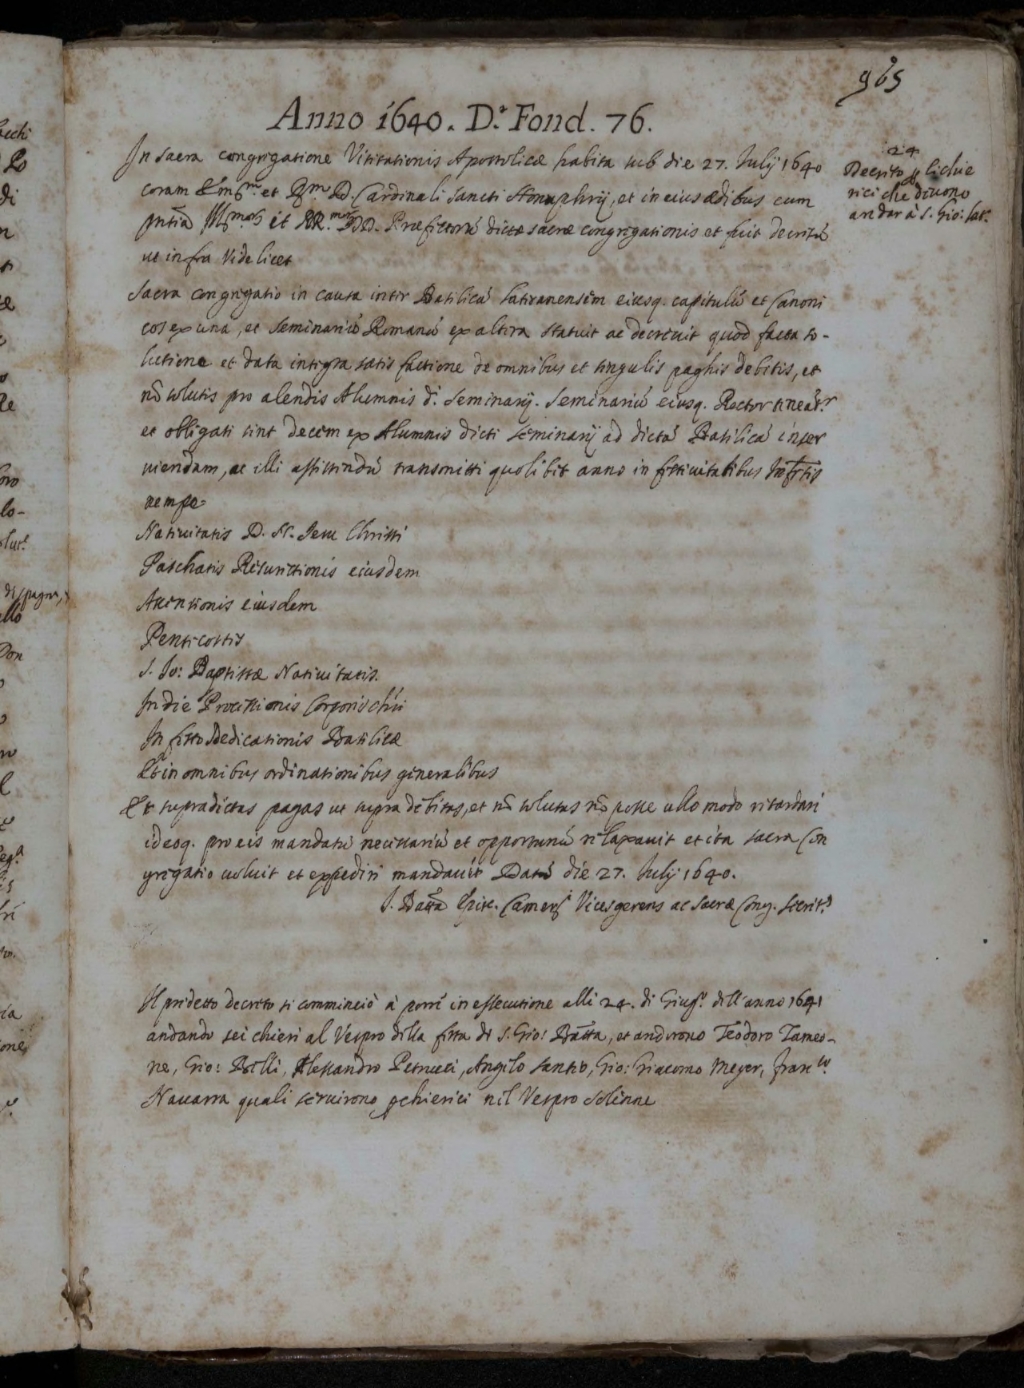 965
Anno 1640. D.ª Fond. 76.
In sacra congregatione Visitationis Apostolicæ habita sub die 27. Julij 1640
coram Em.mo et R.mo D. Cardinali Sancti Honuphrij, et in eius ædibus cum
pñtia Ill.morum et RR.morum DD. Præfectorũ dictæ sacræ congregationis et fuit decretũ
ut infra videlicet
24
Decreto p. li chie
rici che devono
andar à S. Gio: Lat.º
Sacra congregatio in causa inter Basilicã Lateranensem eiusq. capitulũ et Canoni
cos ex una, et Seminariũ Romanũ ex altera statuit ac decrevit quod facta so-
lutione et data integra satisfactione de omnibus et singulis paghis debitis, et
nõ solutis pro alendis Alumnis d.i Seminarij. Seminariũ eiusq. Rector teneãtr
et obligati sint decem ex Alumnis dicti seminarij ad dictã Basilicã inser
viendam, ac illi assistendũ transmitti quolibet anno in festivitatibus infrĩs
nempe
Nativitatis D. N. Jesu Christi
Paschatis Resurrectionis eiusdem
Ascensionis eiusdem
Pentecostis
S. Jo: Baptistæ Nativitatis
In die Processionis Corporis Chri
In festo Dedicationis Basilicæ
Et in omnibus ordinationibus generalibus
Et supradictas pagas ut supra debitas, et nõ solutas nõ posse ullo modo retardari
ideoq. pro eis mandatũ necessariũ et opportunũ relaxavit et ita sacra Con
gregatio voluit et expediri mandavit Datũ die 27. Julij 1640.
J. Batta Episc. Camer. Vicesgerens ac Sacræ Cong. Secret.s
Il predetto decreto si comminciò à porre in essecutione alli 24. di Giug.º dell'anno 1641
andando sei chierici al Vespro della festa di S. Gio: Batta, et andorono Teodoro Tames-
ne, Gio: Belli, Alessandro Petrucci, Angelo Santis, Gio: Giacomo Meyer, Franc.co
Navarra quali servirono p chierici nel Vespro Solenne